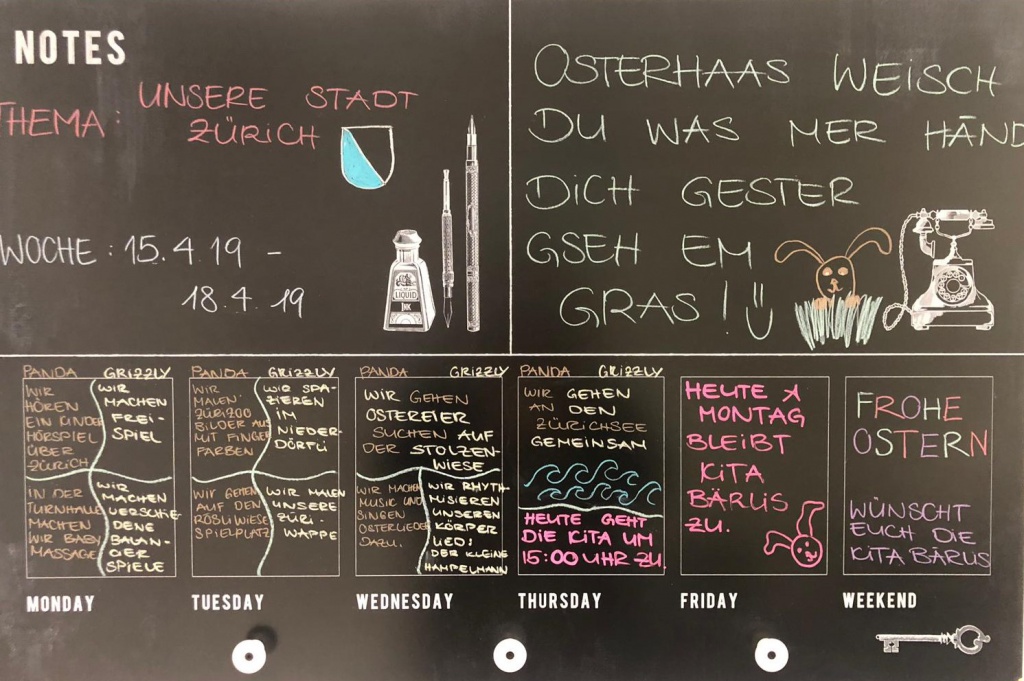 NOTES
THEMA: UNSERE STADT
ZÜRICH
WOCHE: 15.4.19 -
18.4.19
LIQUID
INK
OSTERHAAS WEISCH
DU WAS MER HÄND
DICH GESTER
GSEH EM
GRAS!
PANDA GRIZZLY
WIR
HÖREN
EIN KINDER
HÖRSPIEL
ÜBER
ZÜRICH
WIR
MACHEN
FREI-
SPIEL
IN DER
TURNHALLE
MACHEN
WIR BABY
MASSAGE
WIR
MACHEN
VERSCHIE-
DENE
BALAN-
CIER
SPIELE
MONDAY
PANDA GRIZZLY
WIR
MALEN
ZÜRIZOO
BILDER AUS
MIT FINGER
FARBEN
WIR SPA-
ZIEREN
IM
NIEDER-
DÖRFLI
WIR GEHEN
AUF DEN
RÖSLIWIESE
SPIELPLATZ
WIR MALEN
UNSERE
ZÜRI-
WAPPE
TUESDAY
PANDA GRIZZLY
WIR GEHEN
OSTEREIER
SUCHEN AUF
DER STOLZEN-
WIESE
WIR MACHEN
MUSIK UND
SINGEN
OSTERLIEDER
DAZU.
WIR RHYTH-
MISIEREN
UNSEREN
KÖRPER
LIED:
DER KLEINE
HAMPELMANN
WEDNESDAY
PANDA GRIZZLY
WIR GEHEN
AN DEN
ZÜRICHSEE
GEMEINSAM
HEUTE GEHT
DIE KITA UM
15:00 UHR ZU.
THURSDAY
HEUTE &
MONTAG
BLEIBT
KITA
BÄRLIS
ZU.
FRIDAY
FROHE
OSTERN
WÜNSCHT
EUCH DIE
KITA BÄRLIS
WEEKEND